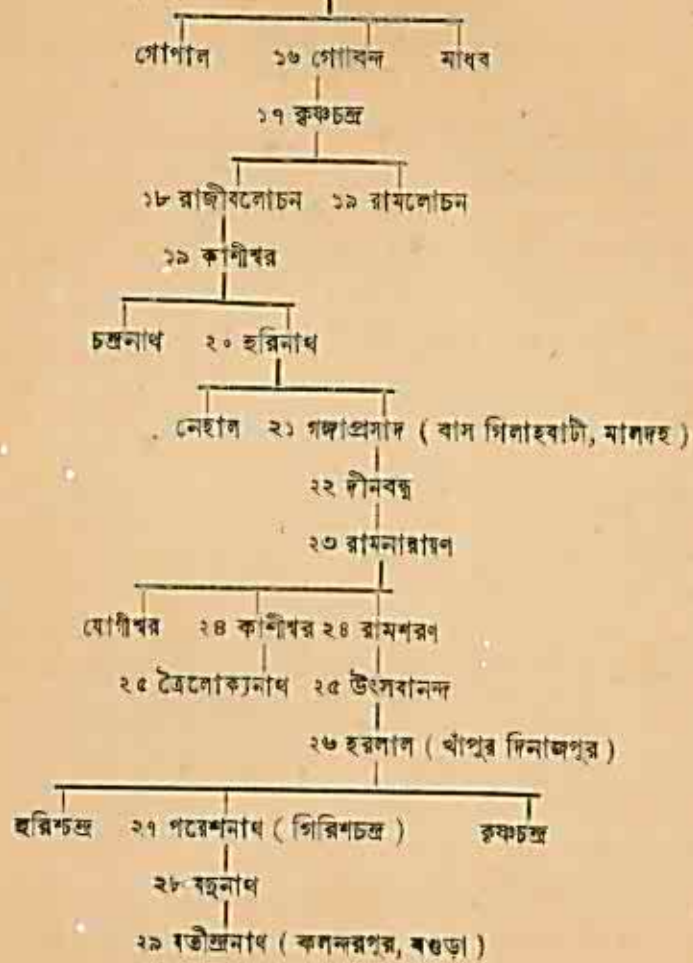 গোপাল ১৬ গোবিন্দ মাধব
১৭ কৃষ্ণচন্দ্র
১৮ রাজীবলোচন ১৯ রামলোচন
১৯ কাশীশ্বর
চন্দ্রনাথ ২০ হরিনাথ
নেহাল ২১ গঙ্গাপ্রসাদ ( বাস গিলাহবাটী, মালদহ )
২২ দীনবন্ধু
২৩ রামনারায়ণ
যোগীশ্বর ২৪ কাশীশ্বর ২৪ রামশরণ
২৫ ত্রৈলোক্যনাথ ২৫ উৎসবানন্দ
২৬ হরলাল ( খাঁপুর দিনাজপুর )
হরিশ্চন্দ্র ২৭ পরেশনাথ ( গিরিশচন্দ্র ) কৃষ্ণচন্দ্র
২৮ যদুনাথ
২৯ যতীন্দ্রনাথ ( কলন্দরপুর, বগুড়া )